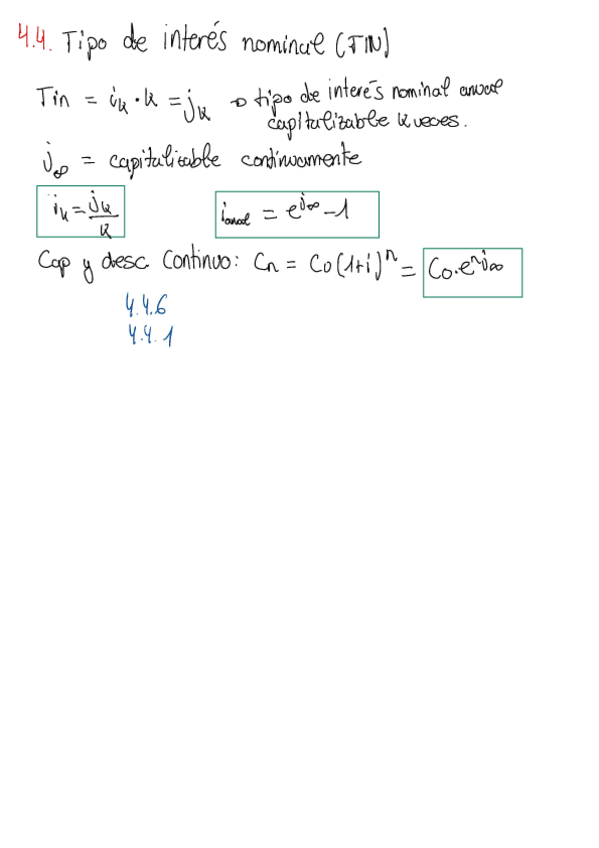 4.4. Tipo de interés nominal (TIN)
Tin = iₖ · k = jₖ → tipo de interés nominal anual
capitalizable k veces.
j∞ = capitalizable continuamente
iₖ = jₖ/k
i anual = e^j∞ - 1
Cap y desc. Continuo: Cn = C0(1+i)^n = C0·e^nj∞
4.4.6
4.4.1